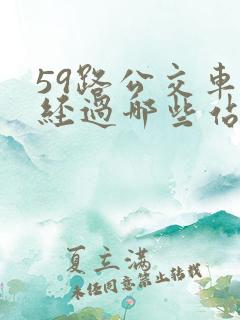 59路公交車
經過哪些佔
夏立滿
未经同意禁止转载